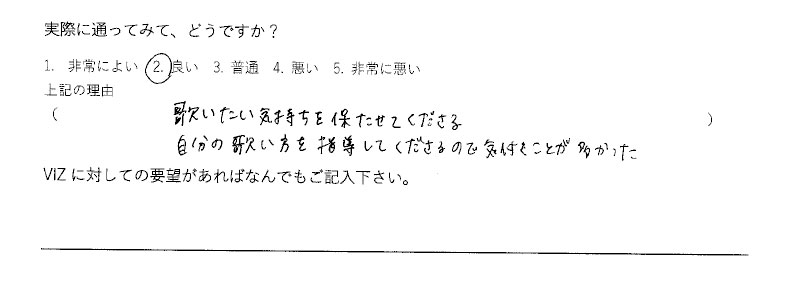 実際に通ってみて、どうですか？
1. 非常によい 2. 良い 3. 普通 4. 悪い 5. 非常に悪い
上記の理由
（ 歌いたい気持ちを保たせてくださる ）
自分の歌い方を指導してくださるので気付くことが多かった
ViZ に対しての要望があればなんでもご記入下さい。